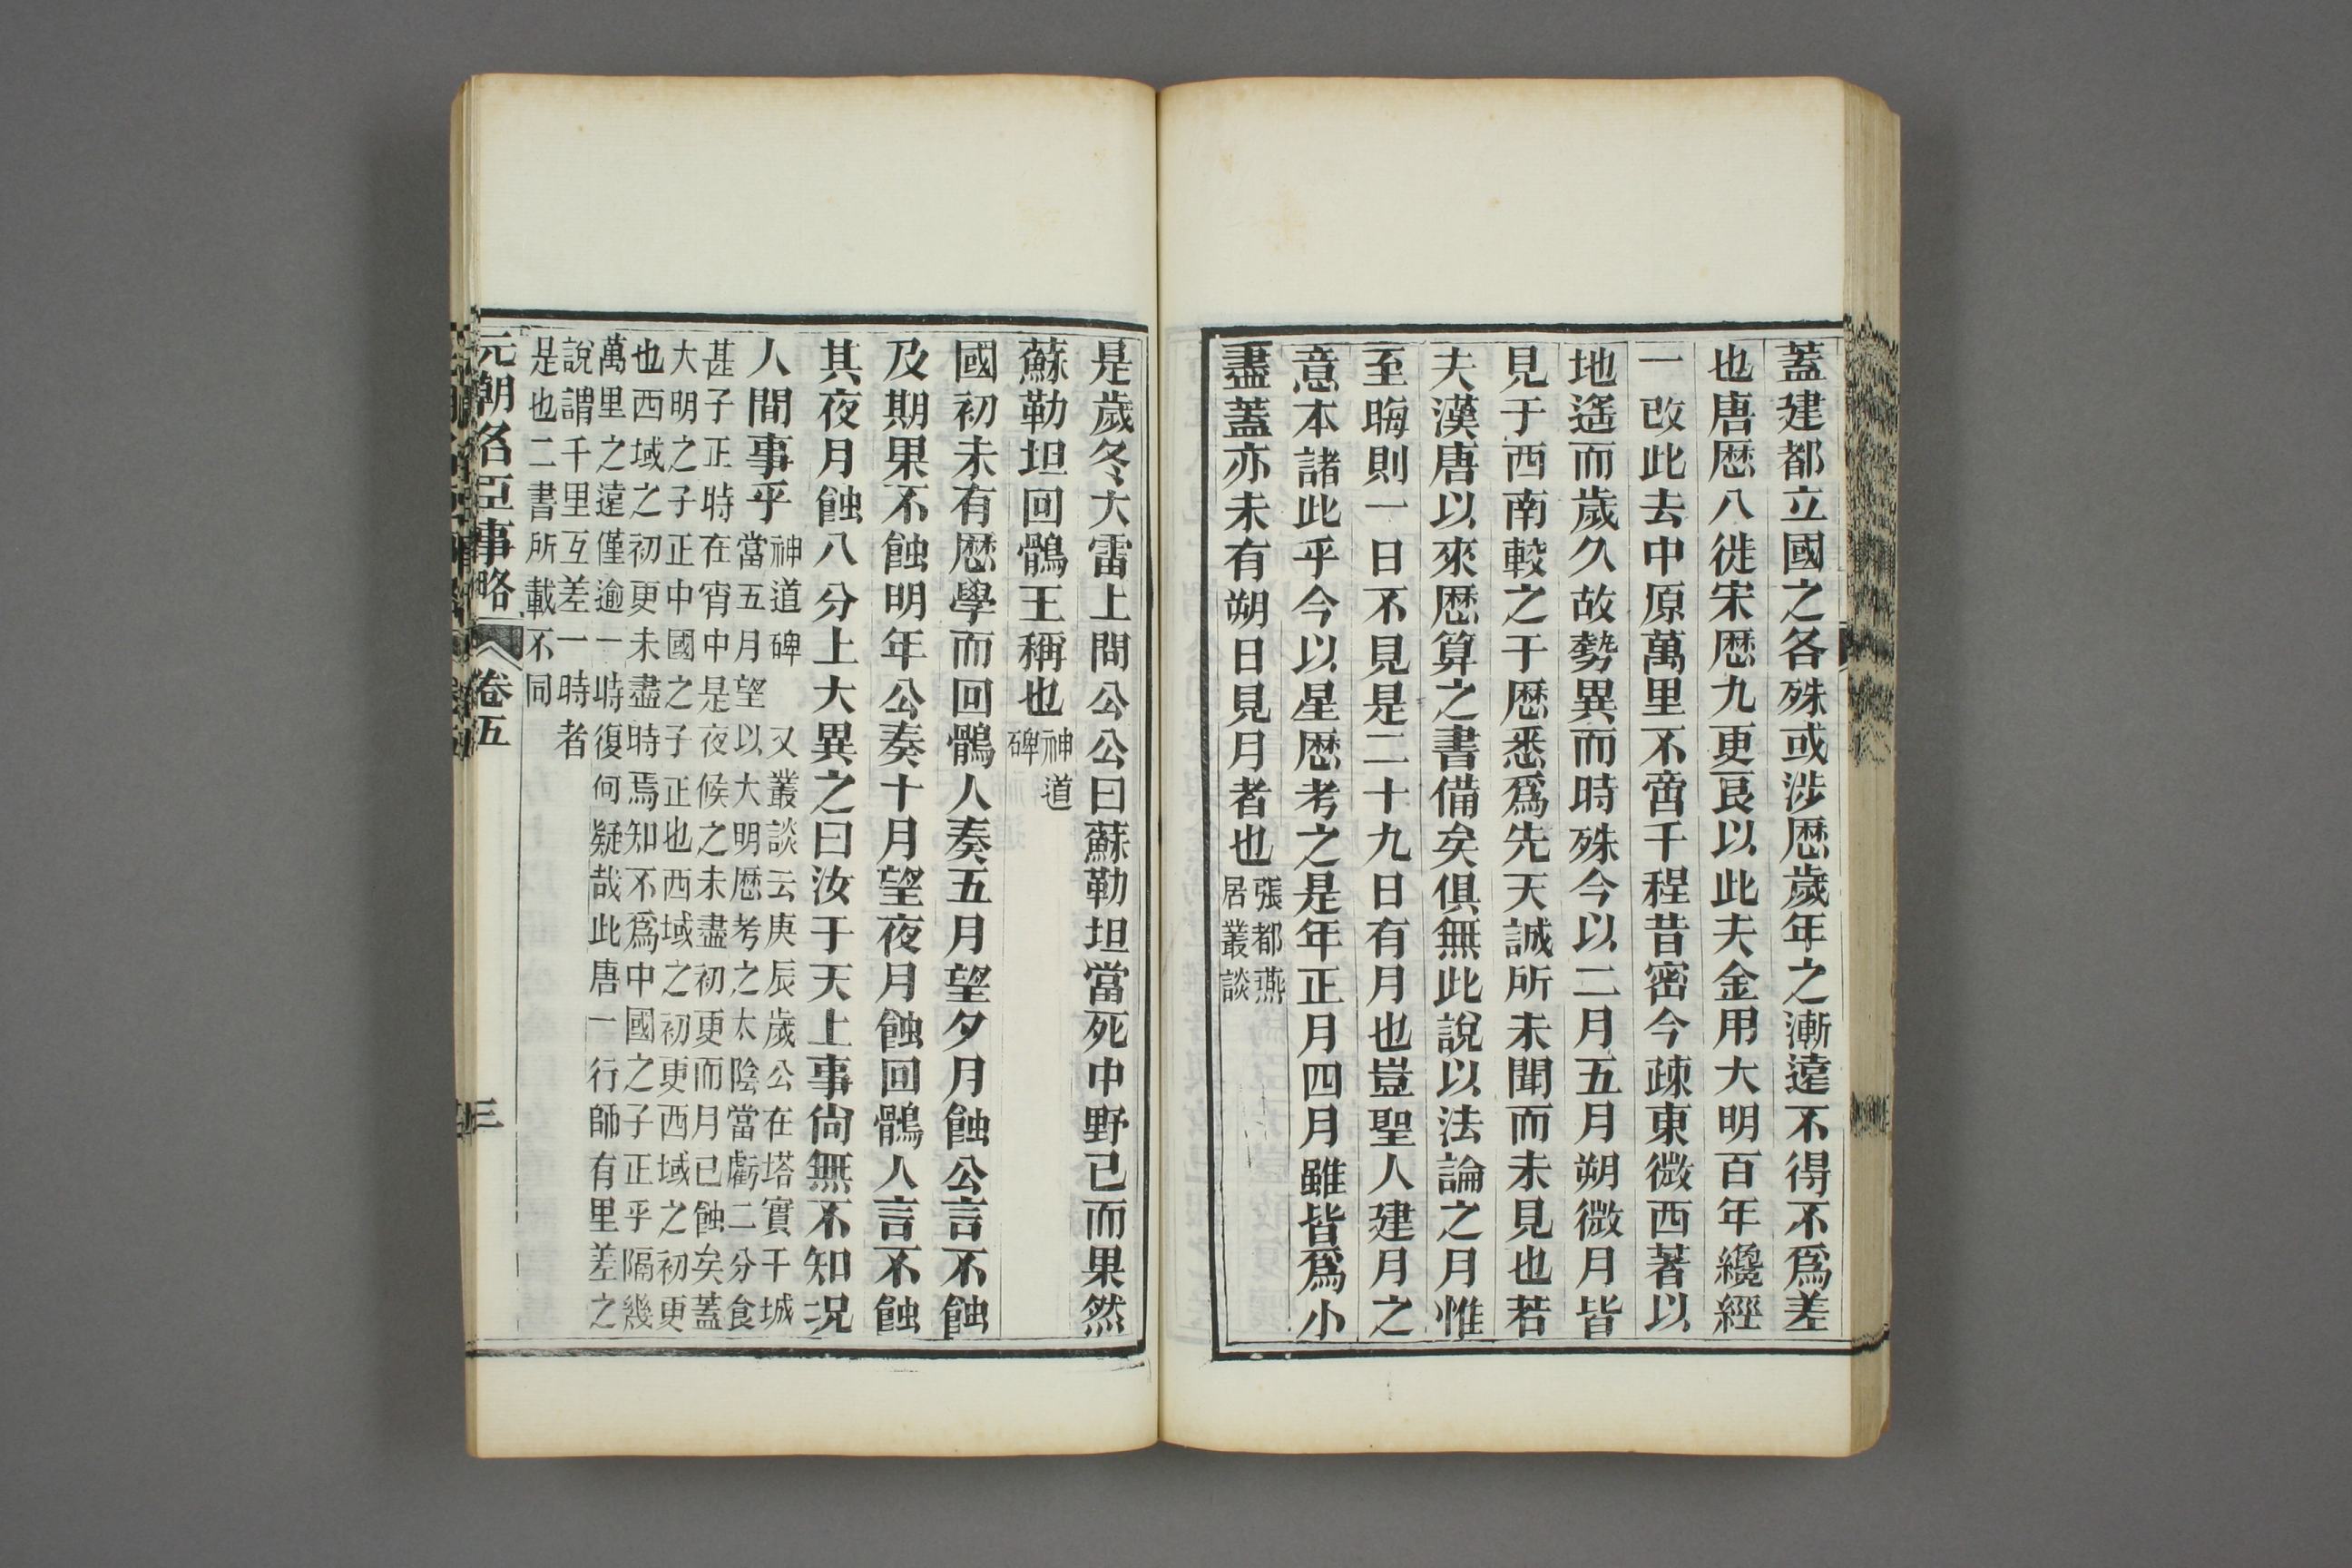 蓋建都立國之各殊或涉厯歲年之漸遠不得不爲差
也唐厯八徙宋厯九更良以此夫金用大明百年纔經
一改此去中原萬里不啻千程昔密今疎東微西著以
地遙而歲久故勢異而時殊今以二月五月朔微月皆
見于西南較之于厯悉爲先天誠所未聞而未見也若
夫漢唐以來厯算之書備矣俱無此說以法論之月惟
至晦則一日不見是二十九日有月也豈聖人建月之
意本諸此乎今以星厯考之是年正月四月雖皆爲小
盡蓋亦未有朔日見月者也
張都燕
居叢談
是歲冬大雷上問公公曰蘇勒坦當死中野已而果然
蘇勒坦回鶻王稱也
神道
碑
國初未有厯學而回鶻人奏五月望夕月蝕公言不蝕
及期果不蝕明年公奏十月望夜月蝕回鶻人言不蝕
其夜月蝕八分上大異之曰汝于天上事尙無不知况
人間事乎
神道碑 又叢談云庚辰歲公在塔實干城
當五月望以大明厯考之太陰當虧二分食
甚子正時在宵中是夜候之未盡初更而月已蝕矣蓋
大明之子正中國之子正也西域之初更西域之初更
也西域之初更未盡時焉知不爲中國之子正乎隔幾
萬里之遠僅逾一時復何疑哉此唐一行師有里差之
說謂千里互差一時者
是也二書所載不同
元朝名臣事略
卷五
三